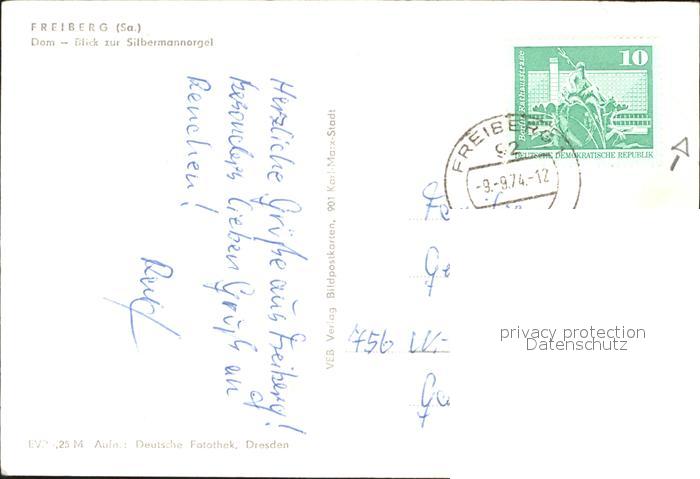 FREIBERG (Sa.)
Dom – Blick zur Silbermannorgel
Herzliche Grüße aus Freiberg!
besonders lieben Gruß an
VEB Verlag Bildpostkarten, 901 Karl-Marx-Stadt
10
Berlin, Rathausstraße
DEUTSCHE DEMOKRATISCHE REPUBLIK
FREIBERG
92
-9.-9.74.-12
Ge
756 W.-
Ge
privacy protection
Datenschutz
,25 M Aufn.: Deutsche Fotothek, Dresden